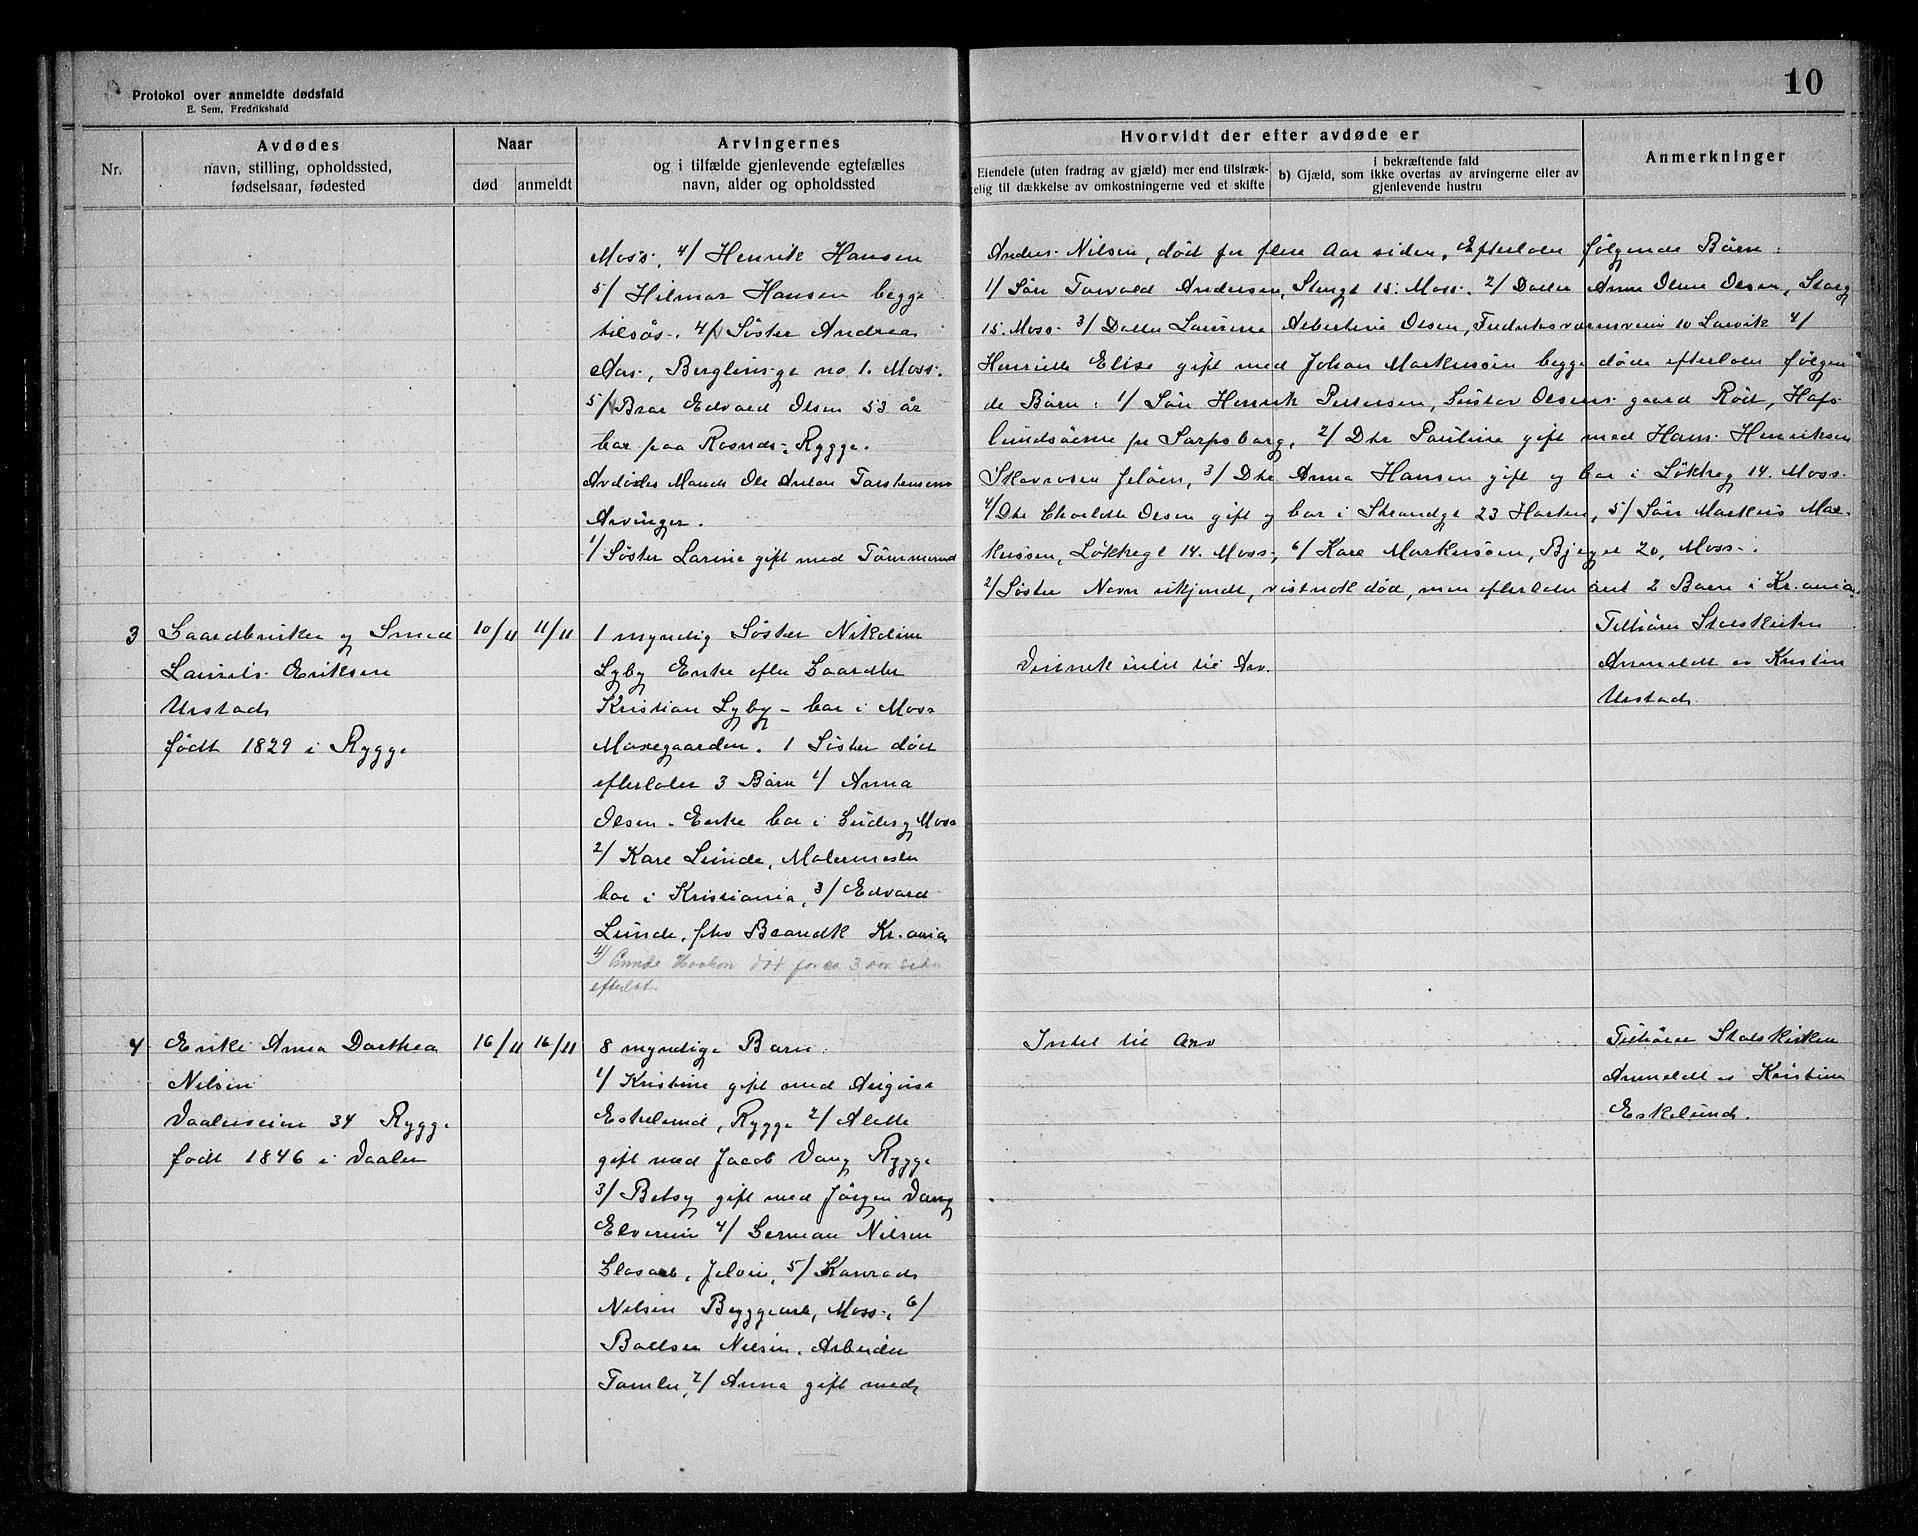 Protokol over anmeldte dødsfald
E. Sem, Fredrikshald
10
Nr.
Avdødes
navn, stilling, opholdssted,
fødselsaar, fødested
Naar
død
anmeldt
Arvingernes
og i tilfælde gjenlevende egtefælles
navn, alder og opholdssted
Hvorvidt der efter avdøde er
Eiendele (uten fradrag av gjæld) mer end tilstræk-
kelig til dækkelse av omkostningerne ved et skifte
i bekræftende fald
b) Gjæld, som ikke overtas av arvingerne eller av
gjenlevende hustru
Anmerkninger
Moss. 4/ Henrik Hansen
5/ Hilmar Hansen begge
tilsøs. 4/ Søster Andrea
Aas, Berglinsge no 1. Moss.
5/ Bror Edvard Olsen 53 år
bor paa Rosnes, Rygge.
Avdødes Mands Ole Anton Torstensens
Arvinger.
1/ Søster Larine gift med Tømmermd
Anders Nilsen, død for flere Aar siden, Efterlater følgende Børn:
1/ Søn Torvald Andersen, Storgt 15. Moss. 2/ Datter Anne Oline Olsen, Storg
15. Moss. 3/ Datter Laurine Albertine Olsen, Fredriksværnsveien 10 Larvik 4/
Henriette Elise gift med Johan Markussen begge døde efterlater følgen
de Børn: 1/ Søn Henrik Pettersen, Gustav Olsens gaard Röd, Hafs-
lundsöerne pr Sarpsborg, 2/ Dtr Pauline gift med Hans Henriksen
Skovrosen Jeløen, 3/ Dtr Anna Hansen gift og bor i Løkkeg 14. Moss.
4/ Dtr Charlotte Olsen gift og bor i Strandgt 23 Horten, 5/ Søn Markus Mar-
kussen, Løkkegt 14. Moss, 6/ Karl Markussen, Bjerget 20, Moss.
2/ Søster Navn ukjendt, vistnok død, men efterlater sig 2 Barn i Kr.ania.
3 Gaardbruker og Smed 10/11 11/11
Laurits Eriksen
Urstad
født 1829 i Rygge
1 myndig Søster Nikoline
Lyby Enke efter Gaardbr
Kristian Lyby – bor i Moss
Mossegaarden. 1 Søster død
efterlater 3 Børn 1/ Anna
Olsen – Enke bor i Moss
2/ Karl Lunde, Malermester
bor i Kristiania, 3/ Edvard
Lunde, Kr.ania
4/ Haakon død for ca 3 aar siden
efterlot
Vistnok intet til Arv.
Tilhører Statskirken
Anmeldt av Kristin
Urstad
4 Enke Anna Dorthea 16/11 16/11
Nilsen
Vaalerveien 34 Rygge
født 1846 i Vaaler
8 myndige Barn:
1/ Kristine gift med
Eskelund, Rygge 2/ Alette
gift med Jacob Vang Rygge
3/ Betsy gift med Jørgen Vang
Elverum 4/ Herman Nilsen
Glasarb, Jeløen, 5/ Konrad
Nilsen Byggearb, Moss, 6/
Nilsen. Arbeider
Tomter, 7/ Anna gift med
Intet til Arv
Tilhører Statskirken
Anmeldt av Kristine
Eskelund.